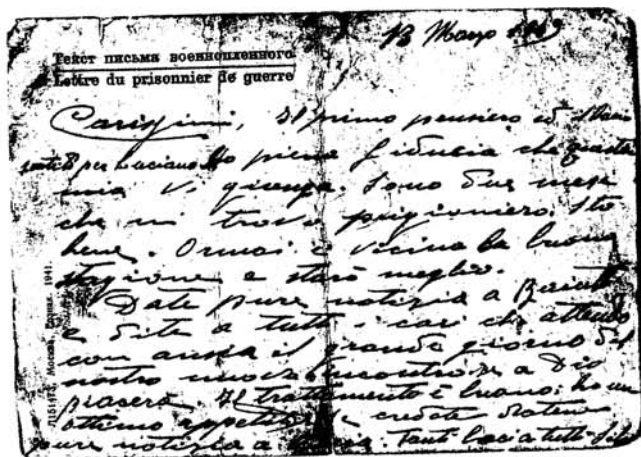 13 Marzo
Текст письма военнопленного
Lettre du prisonnier de guerre
Carissimi, Il primo pensiero ed
per Luciano Ho piena fiducia che questa
mia vi giunga. Sono due mesi
che mi trovo prigioniero. Sto
bene. Ormai è vicina la buona
stagione e starò meglio.
Date pure notizia a
e dite a tutti i cari che attendo
con ansia il grande giorno del
nostro nuovo incontro se a Dio
piacerà. Il trattamento è buono: ho un
ottimo appetito e
pure notizia a Tanti baci a tutti
Л151473, Москва, 1941.